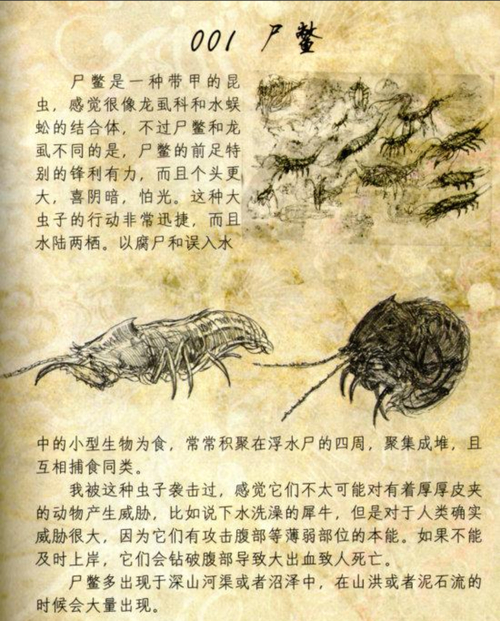 001 尸鳖
尸鳖是一种带甲的昆
虫，感觉很像龙虱科和水蜈
蚣的结合体，不过尸鳖和龙
虱不同的是，尸鳖的前足特
别的锋利有力，而且个头更
大，喜阴暗，怕光。这种大
虫子的行动非常迅捷，而且
水陆两栖。以腐尸和误入水
中的小型生物为食，常常积聚在浮水尸的四周，聚集成堆，且
互相捕食同类。
我被这种虫子袭击过，感觉它们不太可能对有着厚厚皮夹
的动物产生威胁，比如说下水洗澡的犀牛，但是对于人类确实
威胁很大，因为它们有攻击腹部等薄弱部位的本能。如果不能
及时上岸，它们会钻破腹部导致大出血致人死亡。
尸鳖多出现于深山河渠或者沼泽中，在山洪或者泥石流的
时候会大量出现。